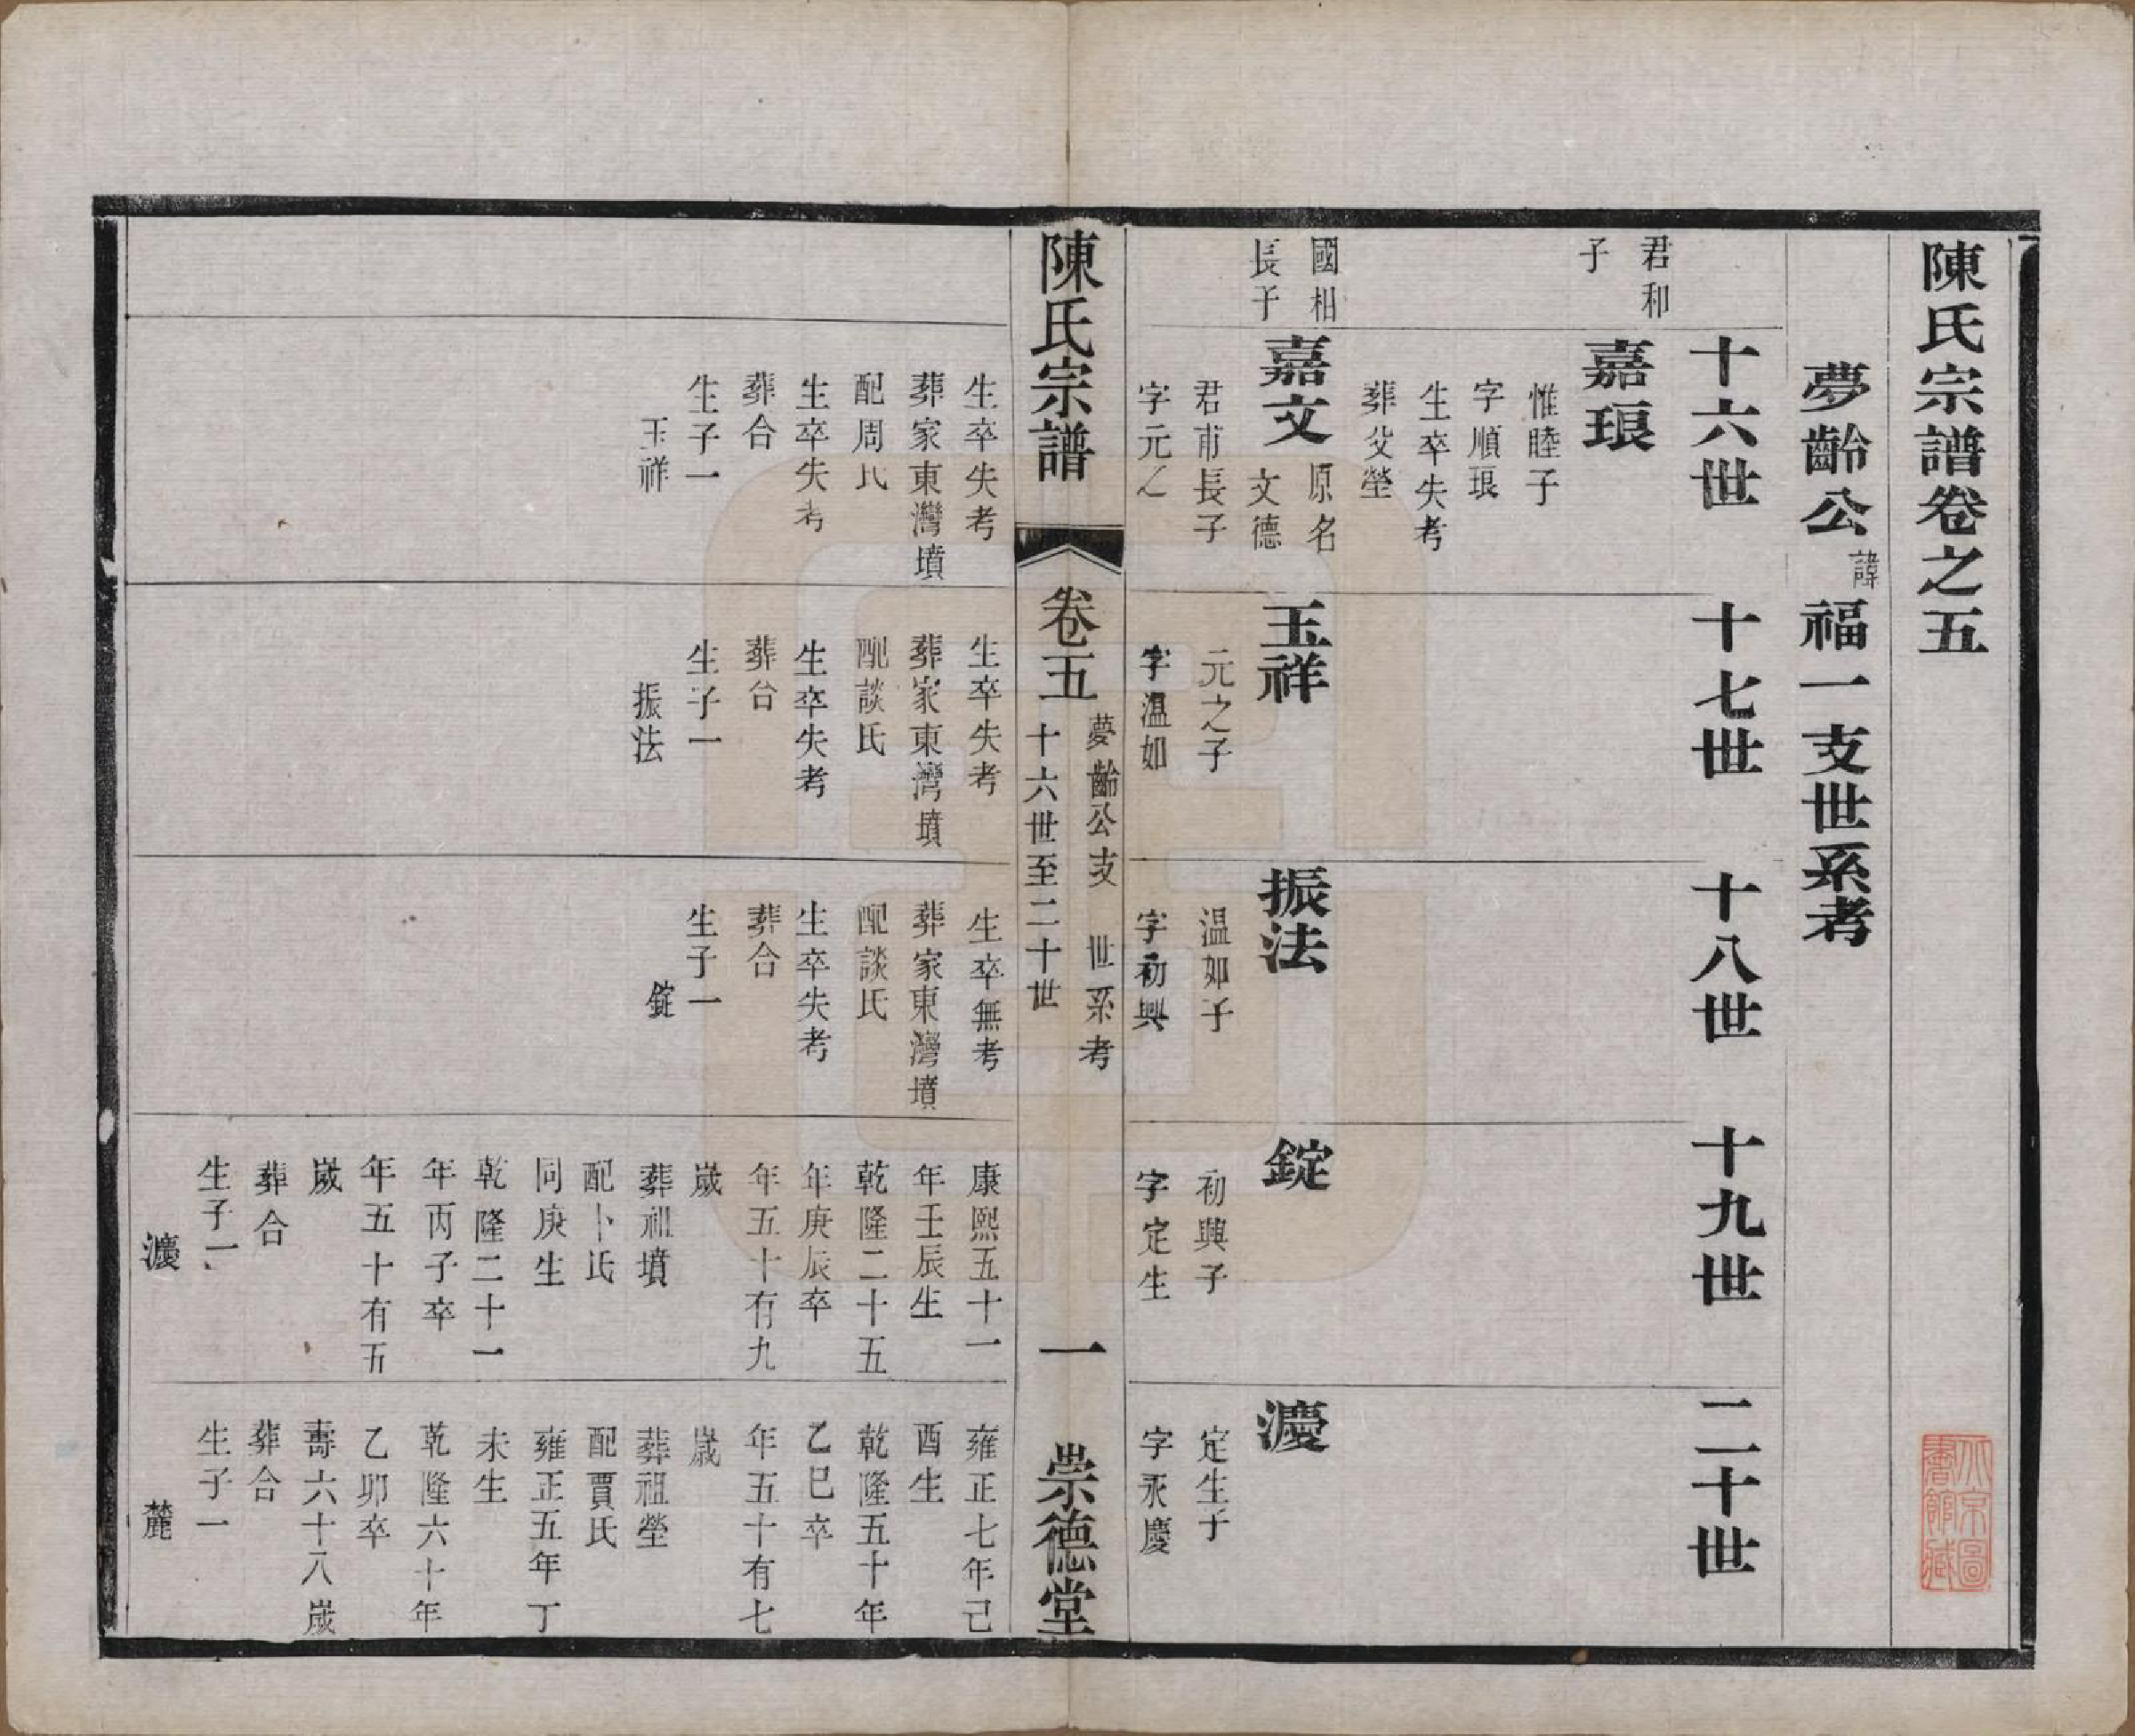 陳氏宗譜卷之五
夢齡公諱福一支世系考
十六世
十七世
十八世
十九世
二十世
君和
子
嘉琅
惟睦子
字順琅
生卒失考
葬父塋
國相
長子
嘉文
原名
文德
君甫長子
字元之
生卒失考
葬家東灣墳
配周氏
生卒失考
葬合
生子一
玉祥
玉祥
元之子
字溫如
生卒失考
葬家東灣墳
配談氏
生卒失考
葬合
生子一
振法
振法
温如子
字初興
生卒無考
葬家東灣墳
配談氏
生卒失考
葬合
生子一
錠
錠
初興子
字定生
康熙五十一
年壬辰生
乾隆二十五
年庚辰卒
年五十有九
歲
葬祖墳
配卜氏
同庚生
乾隆二十一
年丙子卒
年五十有五
歲
葬合
生子一
濅
定生子
字永慶
雍正七年己
酉生
乾隆五十年
乙巳卒
年五十有七
歲
葬祖塋
配賈氏
雍正五年丁
未生
乾隆六十年
乙卯卒
壽六十八歲
葬合
生子一
麓
陳氏宗譜
卷五
夢齡公支 世系考
十六世至二十世
一
崇德堂
北京圖
書館藏